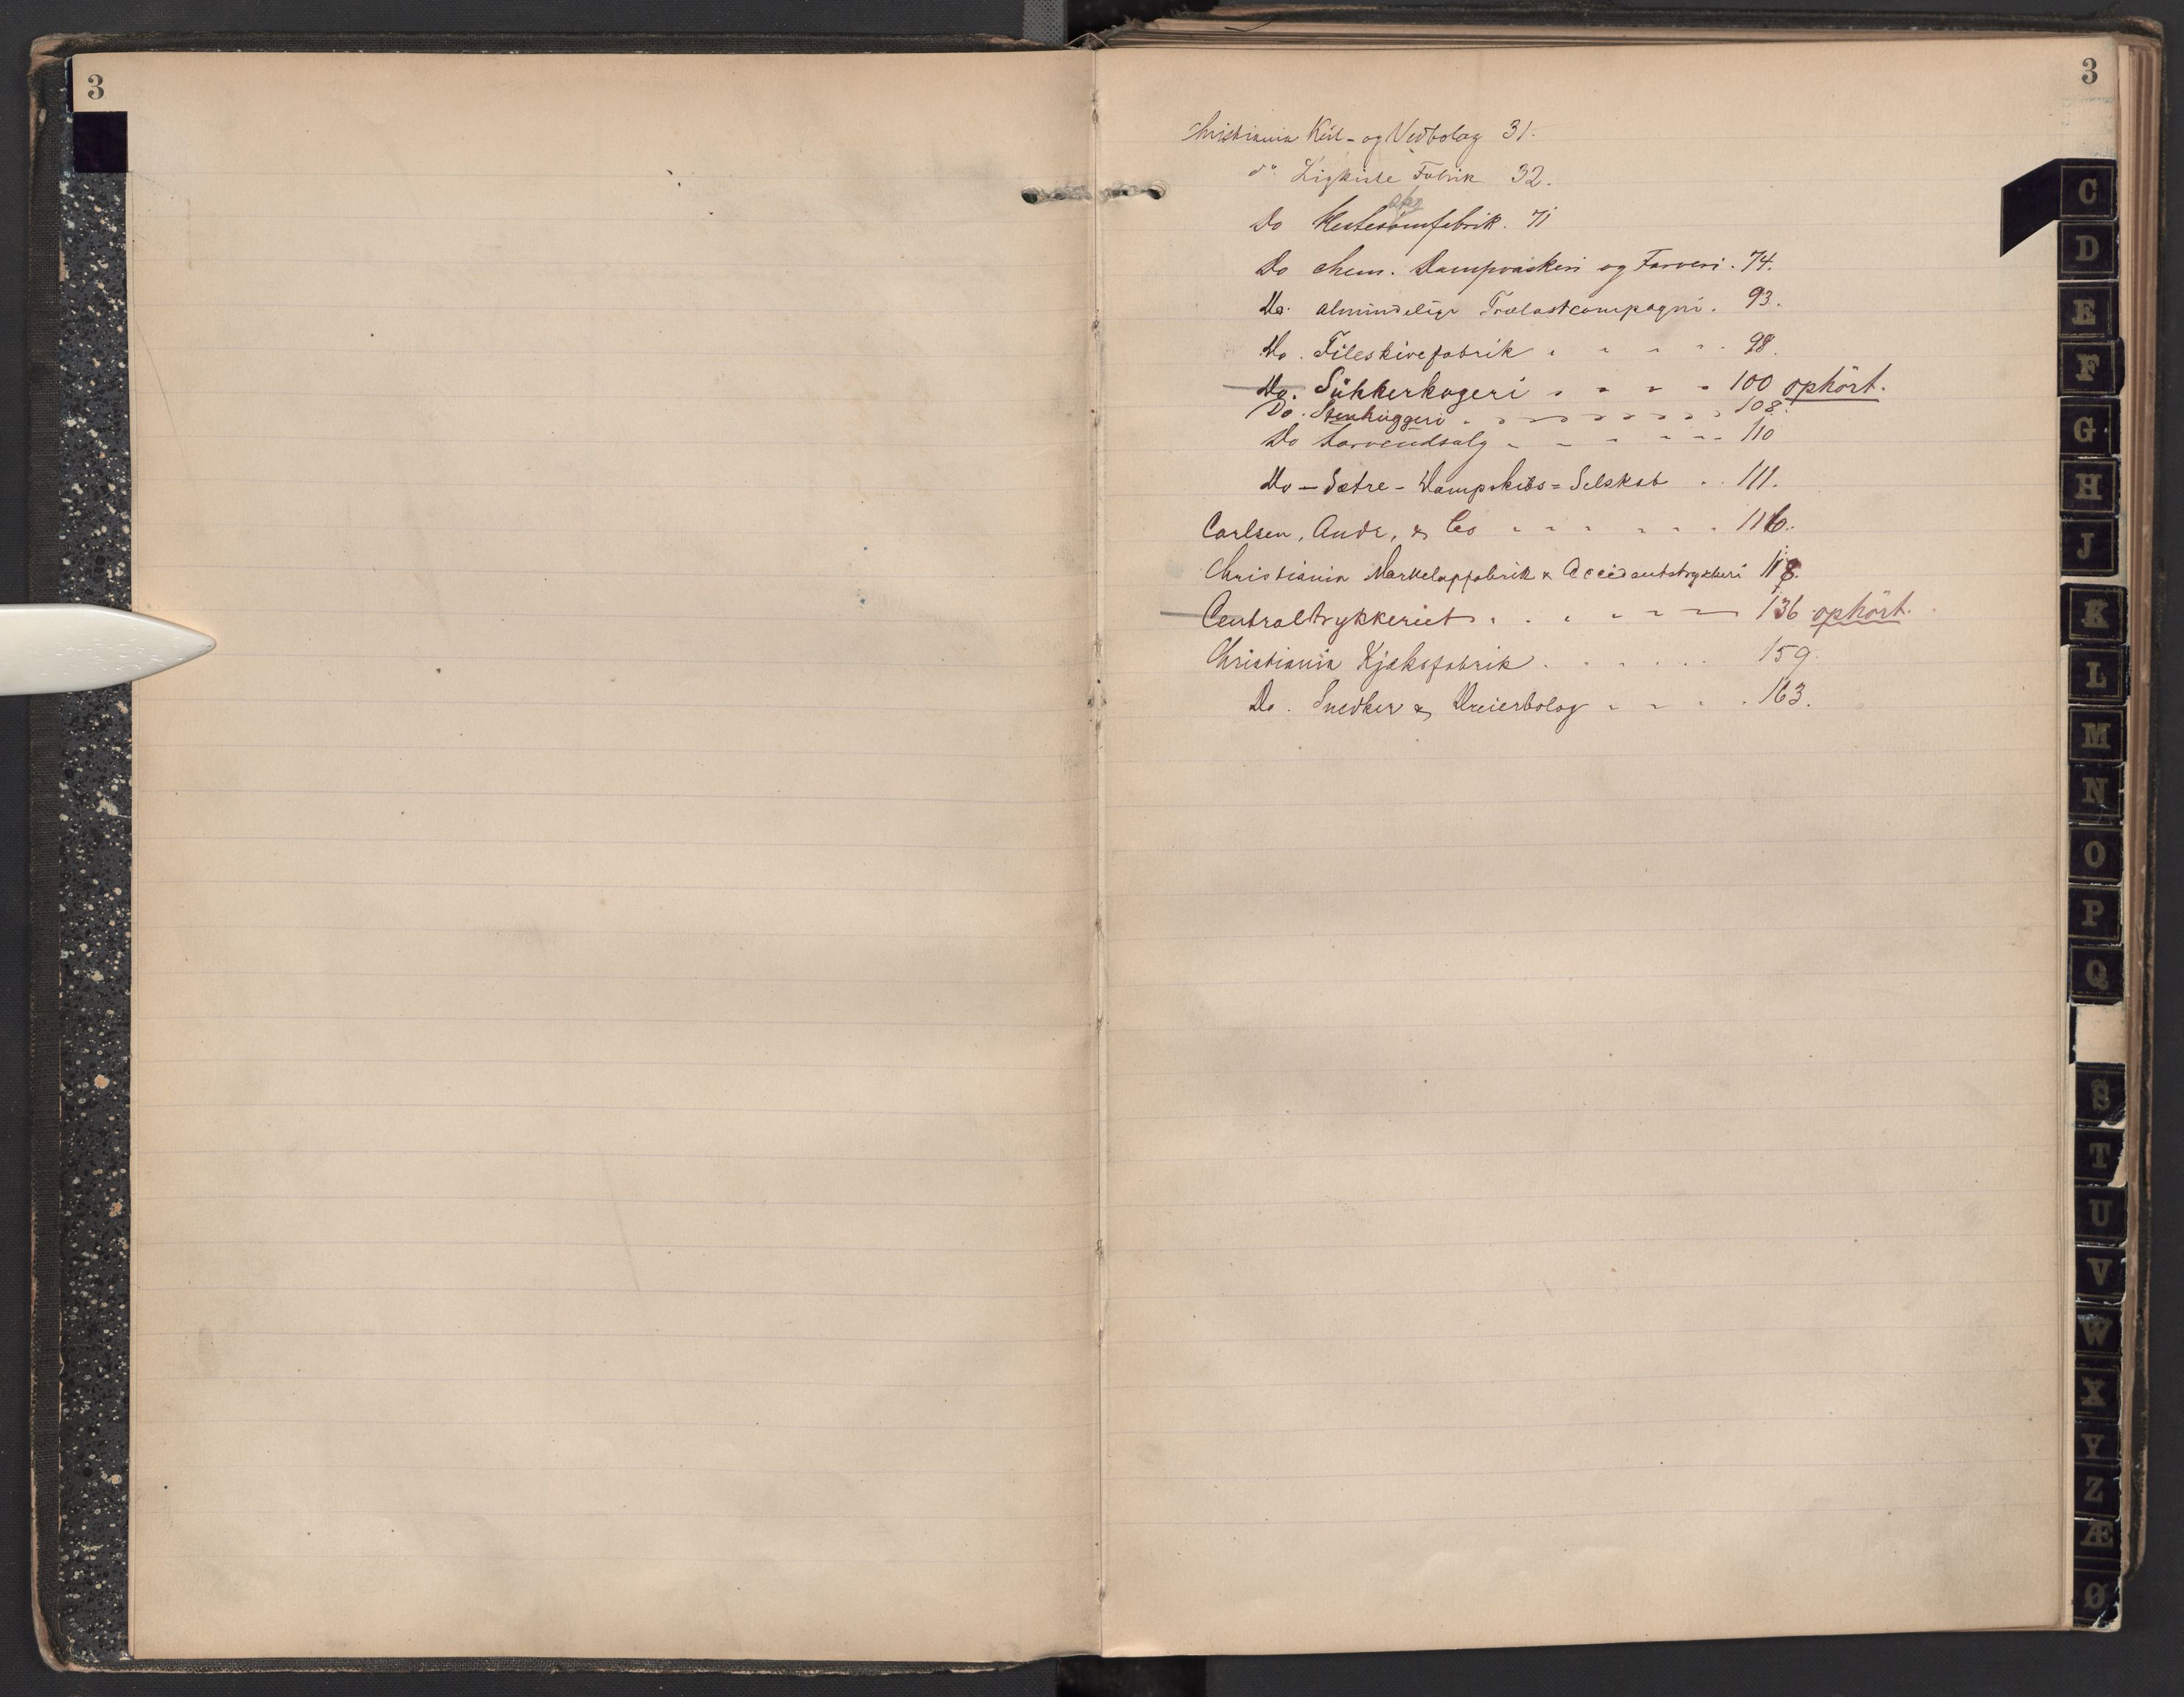 3
3
Christiania Kul- og Vedbolag 31.
do Ligkiste Fabrik 32.
Do Hestesømfabrik. 71
Do chem. Dampvaskeri og Farveri. 74.
Do. almindelige Trælastcompagni. 93.
Do. Fileskivefabrik . . . . . 98.
Do. Sukkerkogeri . . . . 100 ophört.
Do. Stenhuggeri . . . . . . . 108.
Do Farveudsalg - - - - - - 110
Do - Sætre - Dampskibs = Selskab . . 111.
Carlsen, Andr, & Co - - - - - - 116.
Christiania Merkelapfabrik & Accidentstrykkeri 118.
Centraltrykkeriet . . . - - - 136 ophört.
Christiania Kjæksfabrik . . . . . . 159.
Do. Snedker & Dreierbolag - - - . 163.
C
D
E
F
G
H
J
K
L
M
N
O
P
Q
S
T
U
V
W
X
Y
Z
Æ
Ø